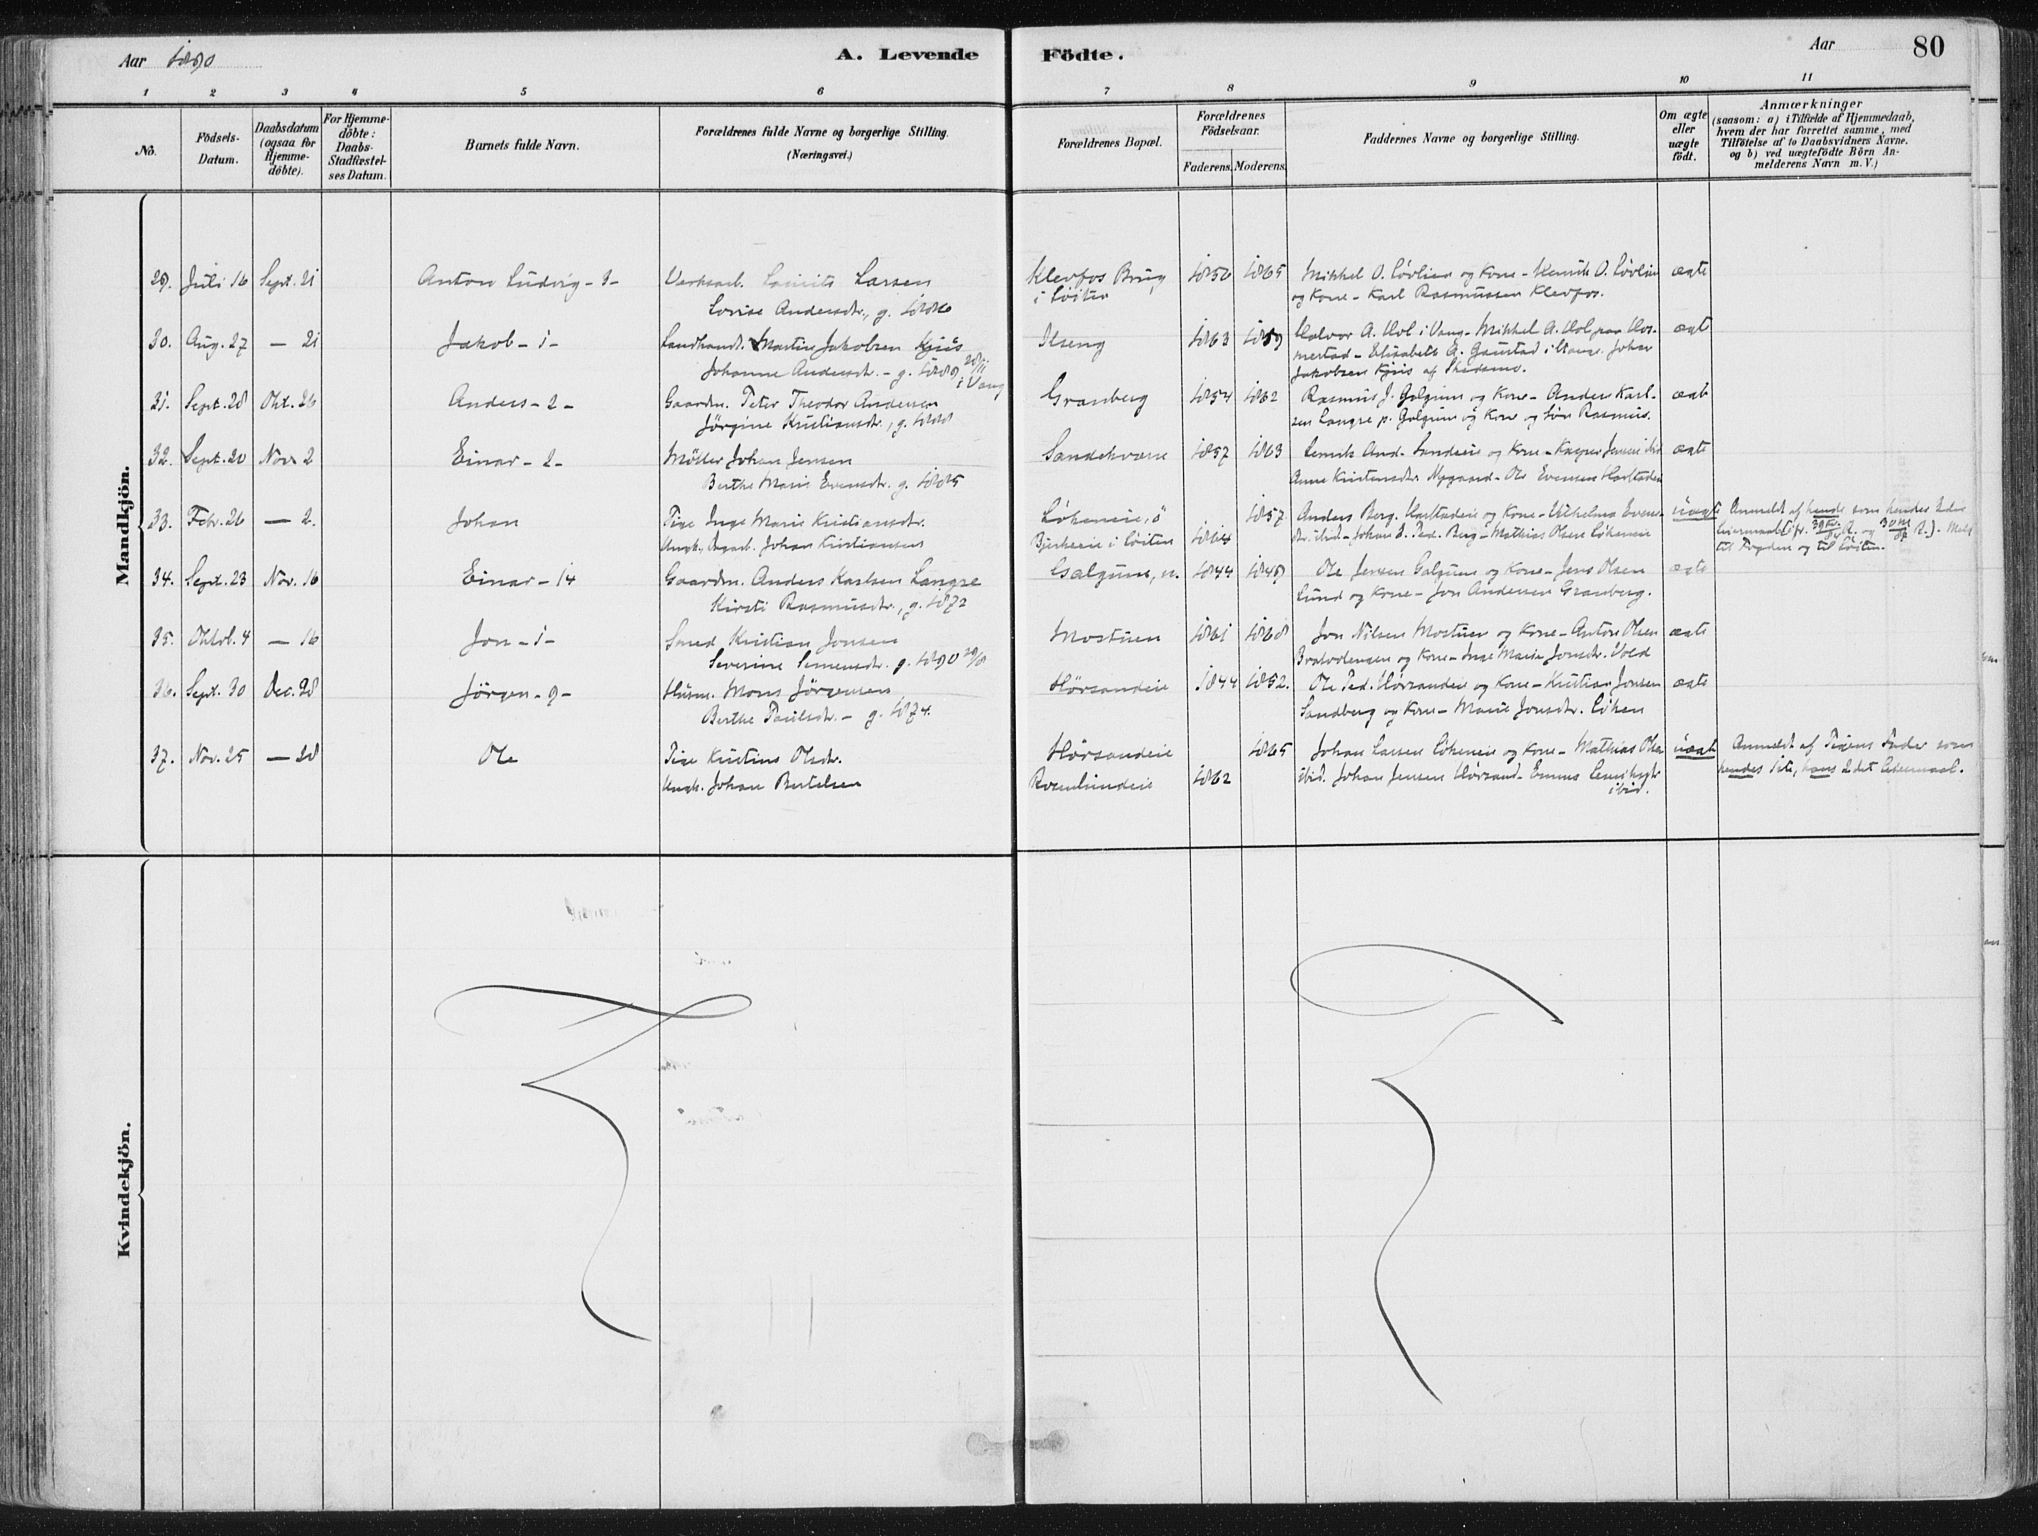 Aar 1890
A. Levende
Födte.
Aar
80
1 2 3 4 5 6 7 8 9 10 11
No.
Födsels-
Datum.
Daabsdatum
(ogsaa for
Hjemme-
döbte).
For Hjemme-
döbte:
Daabs-
Stadfæstel-
ses Datum.
Barnets fulde Navn.
Forældrenes fulde Navne og borgerlige Stilling.
(Næringsvei.)
Forældrenes Bopæl.
Forældrenes
Födselsaar.
Faderens. Moderens.
Faddernes Navne og borgerlige Stilling.
Om ægte
eller
uægte
födt.
Anmærkninger
(saasom: a) i Tilfælde af Hjemmedaab,
hvem der har forrettet samme, med
Tilföielse af to Daabsvidners Navne,
og b) ved uægtefödte Börn An-
melderens Navn m. V.)
Mandkjön.
29. Juli 16 Sept. 21 Anton Ludvig - 3 - Verksarb. Larsen Klevfos Brug 1856 1865 Mikkel O. Lövlien og Kone - Henrik O. Lövlien ægte
Lovise Andersdtr., g. 1886 i Löiten og Kone - Karl Rasmussen Klevfos.
30. Aug. 27 — 21 Jakob - 1 - Landhandl. Martin Jakobsen Kjus Ilseng 1863 1859 Halvor A. Hol i Vang - Mikkel A. Hol paa Hor- ægt
Johanne Andersdtr. - g. 1889 28/11 i Vang merstad - Elisabeth A. Gaustad i Vang. Johan
Jakobsen Kjus af Skedsmo.
31. Sept. 28 Okt. 26 Anders - 2 - Gaardm. Peter Theodor Andersen Granberg 1854 1862 Rasmus J. Galgum og Kone - Anders Karl- ægt
Jörgine Kristiansdtr., g. 1888 sen Langre p. Galgum og Kone og Sön Rasmus.
32. Sept. 20 Nov. 2 Einar - 2 - Möller Johan Jensen 1857 1863 og Kone - Kasper Jensen ibid ægte
Berthe Marie Evensdtr. g. 1885 Anne Kristensdtr. Nygaard - Ole Evensen
33. Febr. 26 — 2. Johan Pige Inge Marie Kristiansdtr. Lökeneie, ö 1857 Anders Berg. og Kone - Vilhelmine Evens- uægt Anmeldt af hende som hendes 2det
Ungk. Johan Kristiansen Bjerkeeie i Löiten 1864 dtr. ibid - Johan Ped. Berg - Mathias Olsen Lökenen
til Fogden og til Löiten.
34. Sept. 23 Nov. 16 Einar - 14 Gaardm. Anders Karlsen Langre Galgum, n. 1844 1849 Ole Jensen Galgum og Kone - Jens Olsen ægte
Kirsti Rasmusdtr., g. 1872 Lund og Kone - Jon Andersen Granberg.
35. Oktob. 4 — 16 Jon - 1 - Smed Kristian Jonsen Mostuen 1861 1868 Jon Nilsen Mostuen og Kone - Anton Olsen ægte
Severine Simensdtr. g. 1890 og Kone - Inge Marie Jonsdtr. Vold
36. Sept. 30 Dec. 28 Jörgen - 9 - Husm. Mons Jörgensen Hörsandeie 1844 1852. Ole Ped. Hörsandeie og Kone - Kristian Jonsen ægte
Berthe Paulsdtr. - g. 1874. Sandberg og Kone - Marie Jonsdtr. Löken
37. Nov. 25 — 28 Ole Pige Kristine Olsdtr. Hörsandeie 1865 Johan Larsen Lökeneie og Kone - Mathias Olsen uægt Anmeldt af Pigens Fader som
Ungk. Johan Bertelsen Rosenlundeie 1862 ibid. Johan Jensen Hörsand - ibid. hendes 1ste, hans 2det Leiermaal.
Kvindekjön.